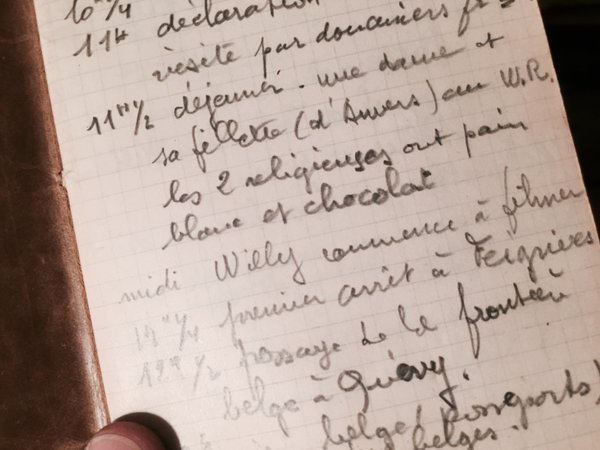 10 H 1/4
11H déclaration
visite par douaniers fr
11 H 1/2 déjeuner. une dame et
sa fillette (d'Anvers) au W.R.
les 2 religieuses ont pain
blanc et chocolat
midi Willy commence à filmer
12H 1/4 premier arrêt à Feignières
12H 1/2 passage de la frontière
belge à Quévy.
belge (passeports)
belges.